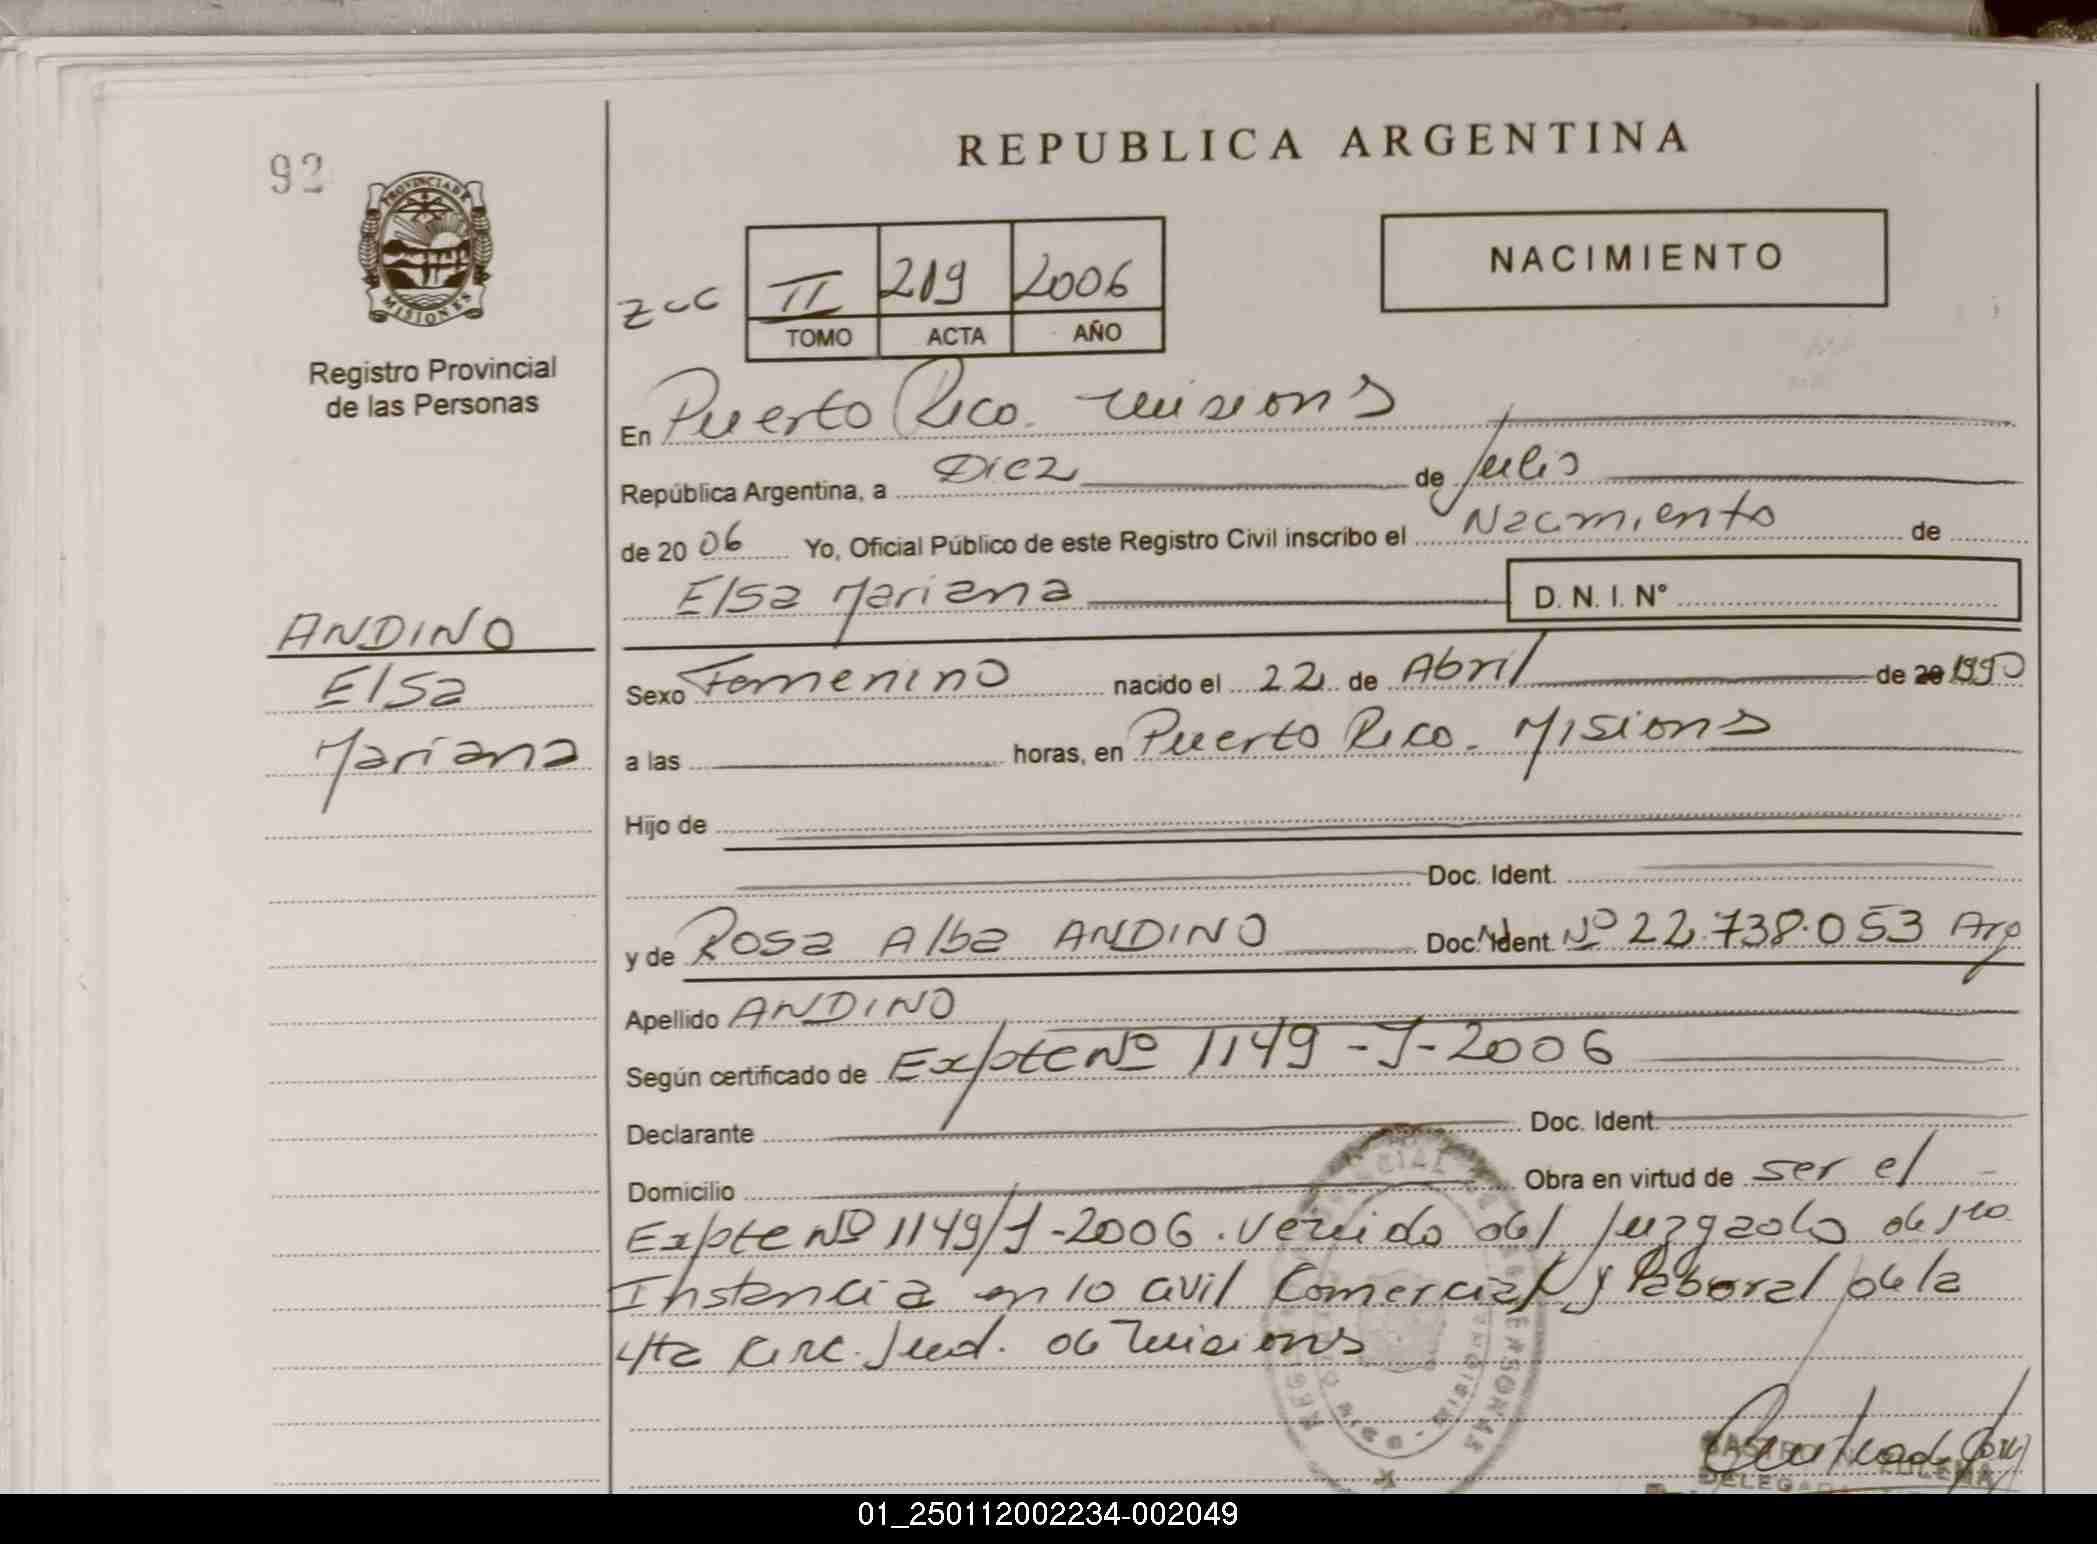 92
PROVINCIA DE
MISIONES
Registro Provincial
de las Personas
ANDINO
Elsa
Mariana
REPUBLICA ARGENTINA
NACIMIENTO
II 219 2006
TOMO ACTA AÑO
En Puerto Rico. Misiones
República Argentina, a Diez de Julio
de 20 06 Yo, Oficial Público de este Registro Civil inscribo el Nacimiento de
Elsa Mariana D. N. I. N°
Sexo Femenino nacido el 22 de Abril de 20 1990
a las horas, en Puerto Rico. Misiones
Hijo de
Doc. Ident.
y de Rosa Alba ANDINO Doc. Ident. Nº 22.738.053 Arg
Apellido ANDINO
Según certificado de Expte Nº 1149-J-2006
Declarante Doc. Ident.
Domicilio Obra en virtud de ser el
Expte Nº 1149/J-2006. Venido del Juzgado de 1ro
Instancia en lo Civil Comercial y Laboral de la
4ta Circ. Jud. de Misiones
01_250112002234-002049